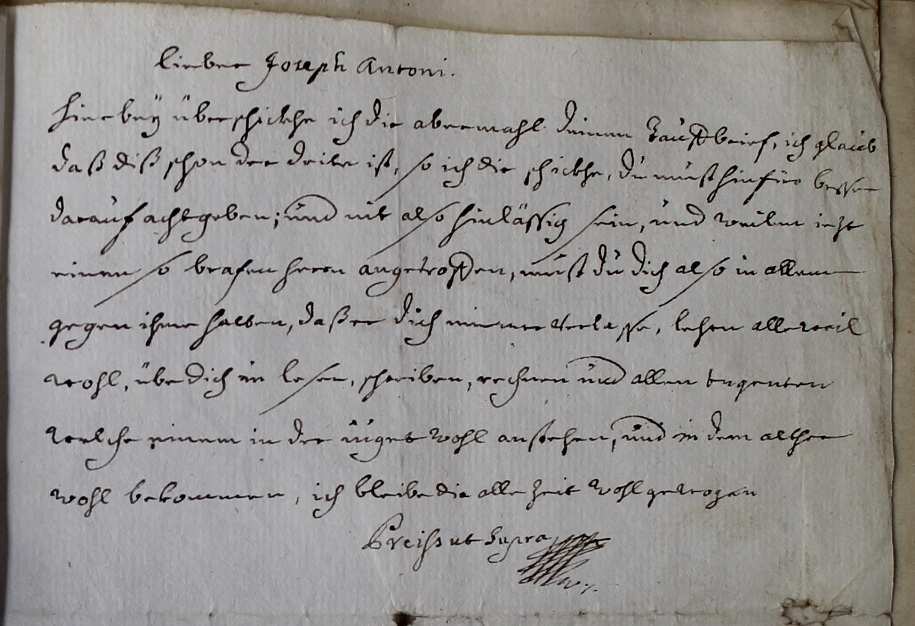 lieber Joseph Antoni.
hierbey überschickhe ich dir abermahl deinen Tauffbrief, ich glaub
daß diß schon der drite ist, so ich dir schickhe, du must hinfüro besser
darauf achtgeben; und nit also hinlässig sein, und weilen iezt
einen so brafen herrn angetroffen, must du dich also in allem
gegen ihme halten, daß er dich nimmer verlasse, lehrn alleweil
wohl, übe dich im lesen, schreiben, rechnen und allen tugenten
welche einem in der iuget wohl anstehen, und in dem alther
wohl bekommen, ich bleibe dir alle Zeit wohlgewogen
ut Supra